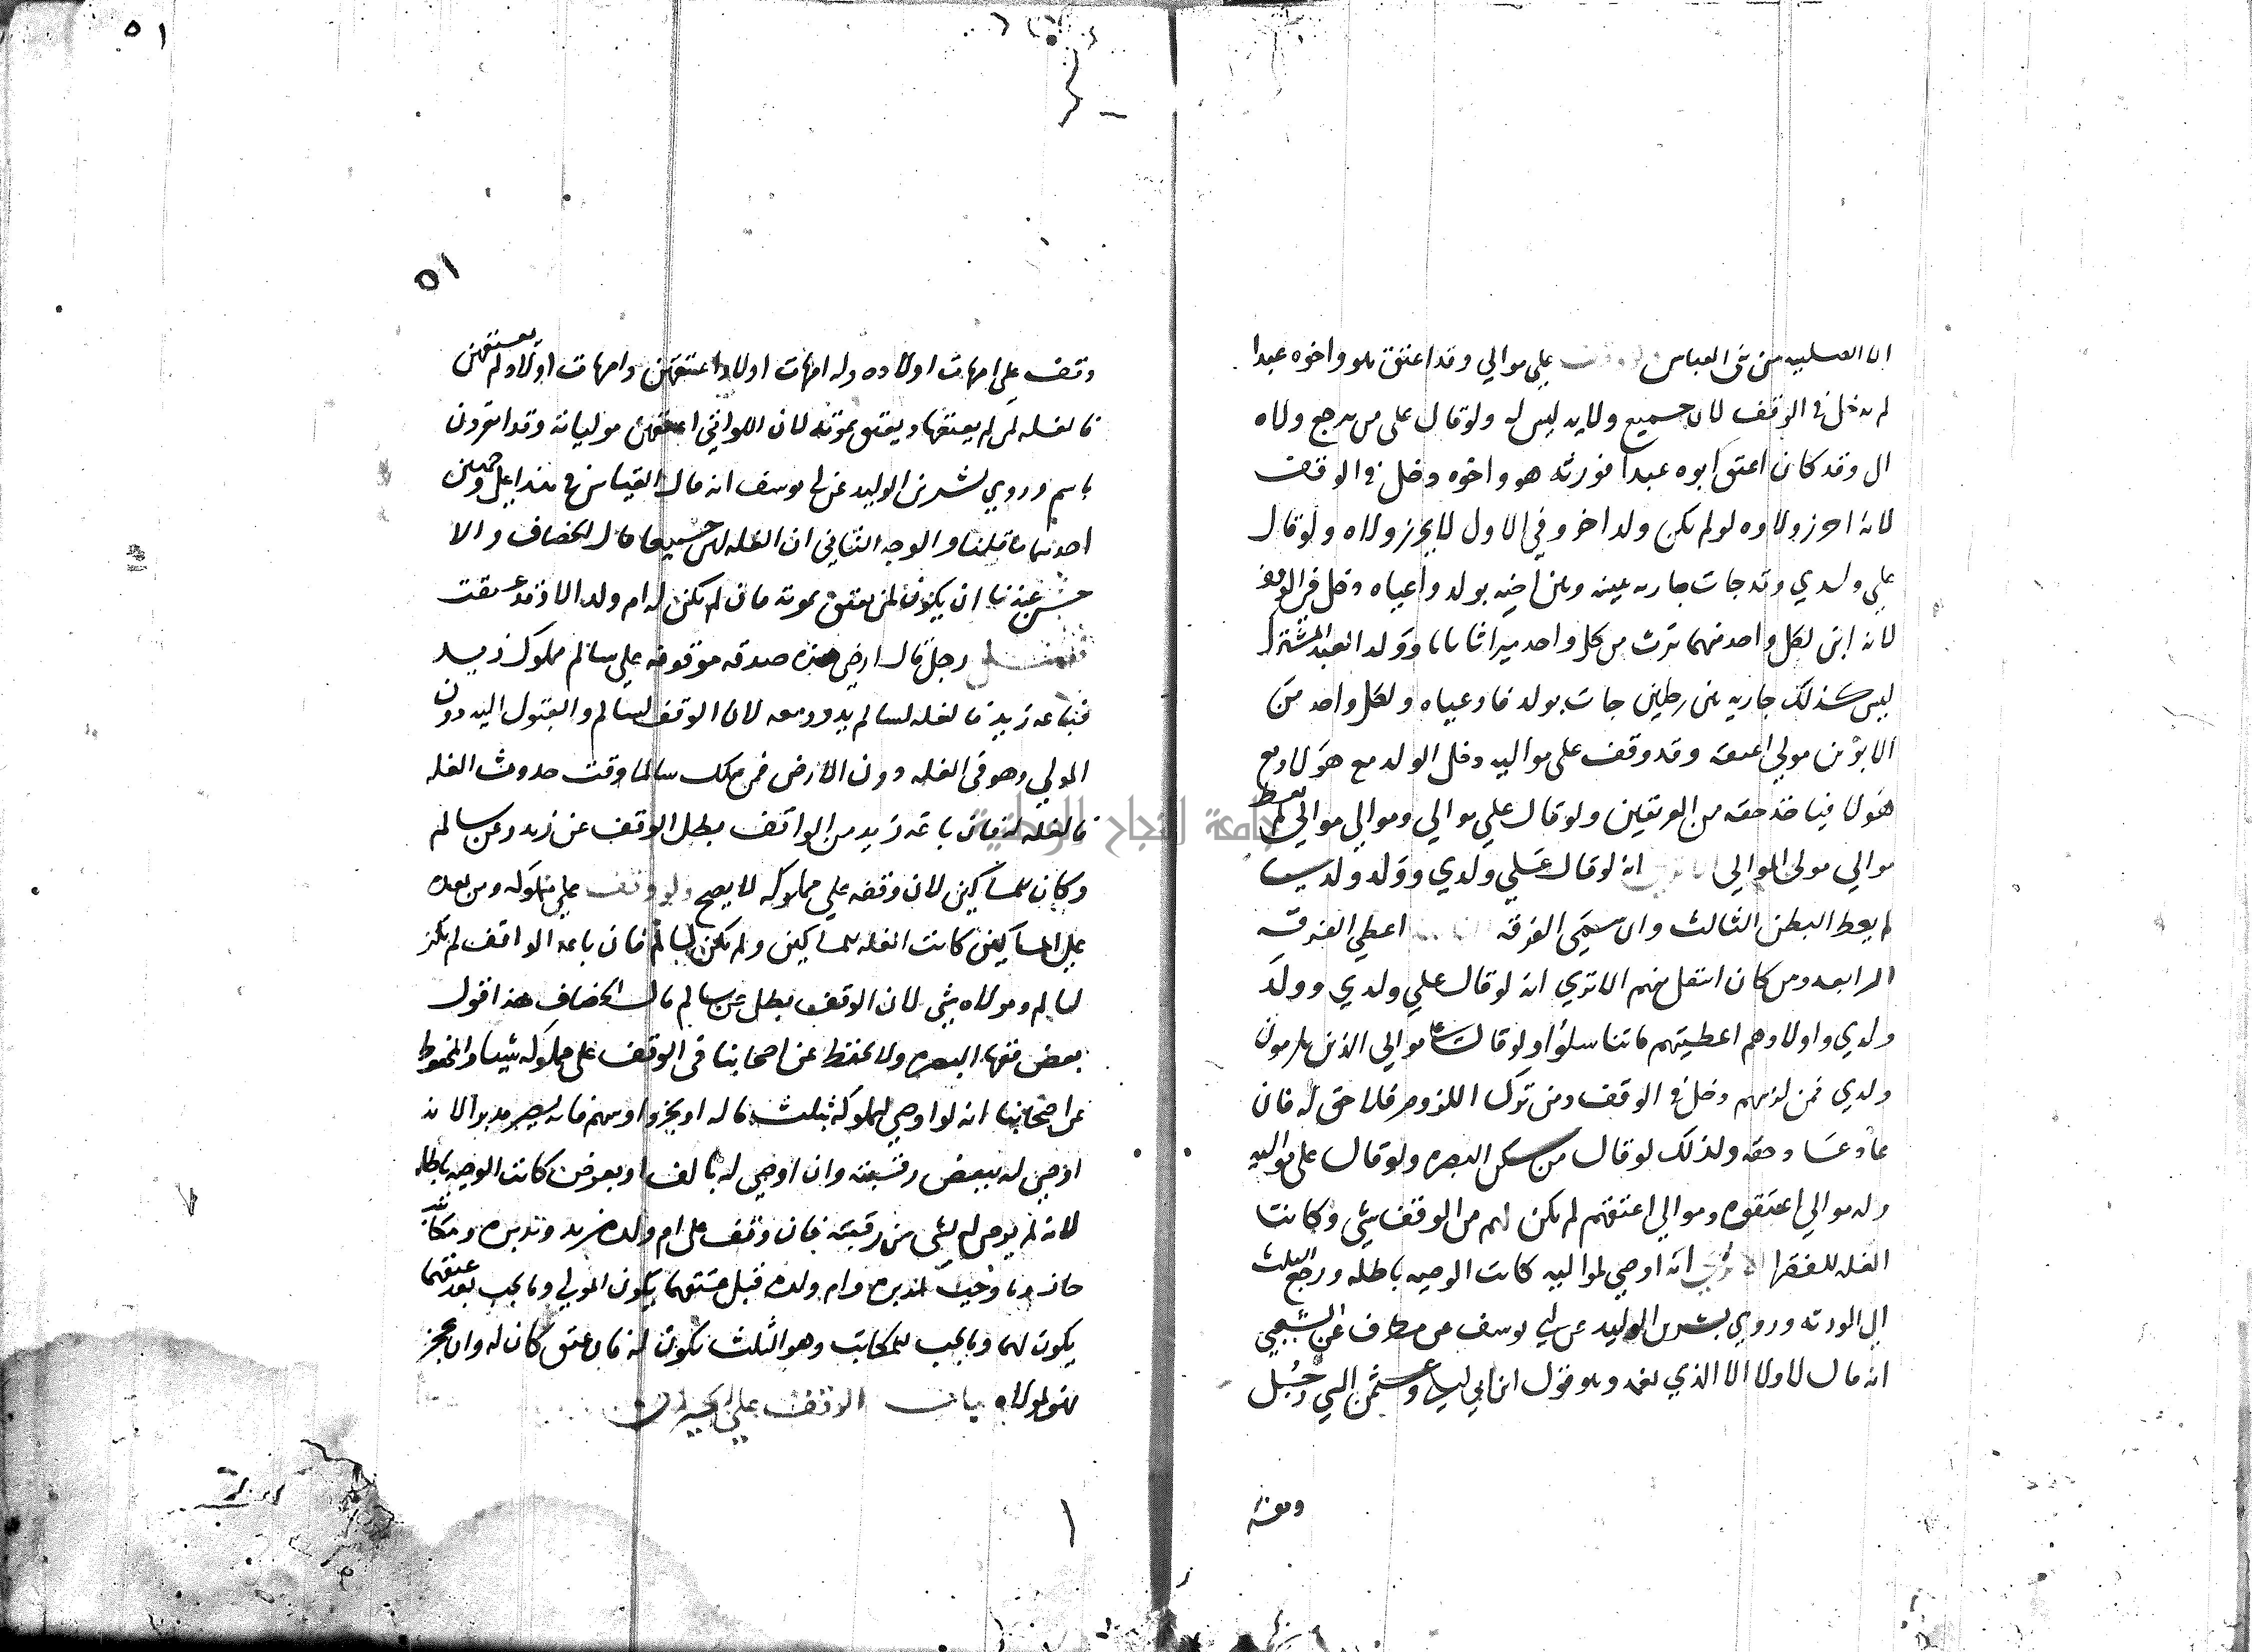 ان الصلبيه من بني العباس ولو وقف علي موالي وقد اعتق هو واخوه عبدا
لم يدخل في الوقف لان جميع ولايه ليس له ولو قال على من يرجع ولاه
الي وقد كان اعتق ابوه عبدا فورثه هو واخوه دخل في الوقف
لانه احرز ولاوه لو لم يكن ولد اخر وفي الاول لا يحرز ولاه ولو قال
علي ولدي وقد جات جاريه بينه وبين اخيه بولد وادعياه دخل في الوقف
لانه ابن لكل واحد منهما يرث من كل واحد ميراثا تاما وولد العبد المشترك
ليس كذلك جاريه بين رجلين جات بولد فادعياه ولكل واحد من
الابوين مولي اعتقه وقد وقف على مواليه دخل الولد مع هولا ومع
هولا فياخذ حقه من الفريقين ولو قال علي موالي وموالي موالي لم يعط
موالي مولى الموالي الا تري انه لو قال علي ولدي وولد ولدي
لم يعط البطن الثالث وان سمي الفرقه اعطي الفرقه
الرابعه ومن كان اسفل منهم الا تري انه لو قال علي ولدي وولد
ولدي واولادهم اعطيتهم ما تناسلوا ولو قال على موالي الذين يلزمون
ولدي فمن لزمهم دخل في الوقف ومن ترك اللزوم فلا حق له فان
عاد عاد حقه ولذلك لو قال من سكن البصره ولو قال على مواليه
وله موالي اعتقوه وموالي اعتقهم لم يكن لهم من الوقف شي وكانت
الغله للفقرا الا تري انه اوصي لمواليه كانت الوصيه باطله ورجع الثلث
الي الورثه وروي بشر بن الوليد عن ابي يوسف عن مطرف عن الشعبي
انه قال لا ولا الا الذي نعمه وهو قول ابن ابي ليلي وعثمن البتي رجل
وقف
٥١
٥١
وقف علي امهات اولاده وله امهات اولاد اعتقهن وامهات اولاد لم يعتقهن
فالغله لمن لم يعتقها ويعتق بموته لان اللواتي اعتقهن مولياته وقد انفردن
باسم وروي بشر بن الوليد عن ابي يوسف انه قال القياس في هذا علي وجهين
احدهما ما قلنا والوجه الثاني ان الغله لهن جميعا قال الخصاف والا
حسن عندنا ان يكون لمن يعتق بموته فان لم يكن له ام ولد الا وقد عتقت
فصل رجل قال ارضي هذه صدقه موقوفه علي سالم مملوك زيد
فباعه زيد فالغله لسالم يدور معه لان الوقف لسالم والقبول اليه دون
المولي وهو في الغله دون الارض فمن ملك سالما وقت حدوث الغله
فالغله له فان باعه زيد من الواقف بطل الوقف عن زيد وعن سالم
وكان للمساكين لان وقفه علي مملوكه لا يصح ولو وقف علي مملوكه ومن بعده
علي المساكين كانت الغله للمساكين ولم يكن لسالم فان باعه الواقف لم يكن
لسالم ومولاه شي لان الوقف بطل عن سالم قال الخصاف هذا قول
بعض فقها البصره ولا نحفظ عن اصحابنا في الوقف على مملوكه شيا والمحفوظ
عن اصحابنا انه لو اوصي لمملوكه بثلث ماله او بجزو او سهم فانه يصير مدبرا لانه
اوصي له ببعض رقبته وان اوصي له بالف او بعرض كانت الوصيه باطله
لانه لم يوص له بشي من رقبته فان وقف على ام ولده زيد ومدبره ومكاتبه
جاز وما وجب لمدبره وام ولده قبل عتقهما يكون للمولي وما يجب بعد عتقهما
يكون لهما وما يجب للمكاتب وهو الثلث يكون له فان عتق كان له وان عجز
فهو لمولاه باب الوقف علي الجيران